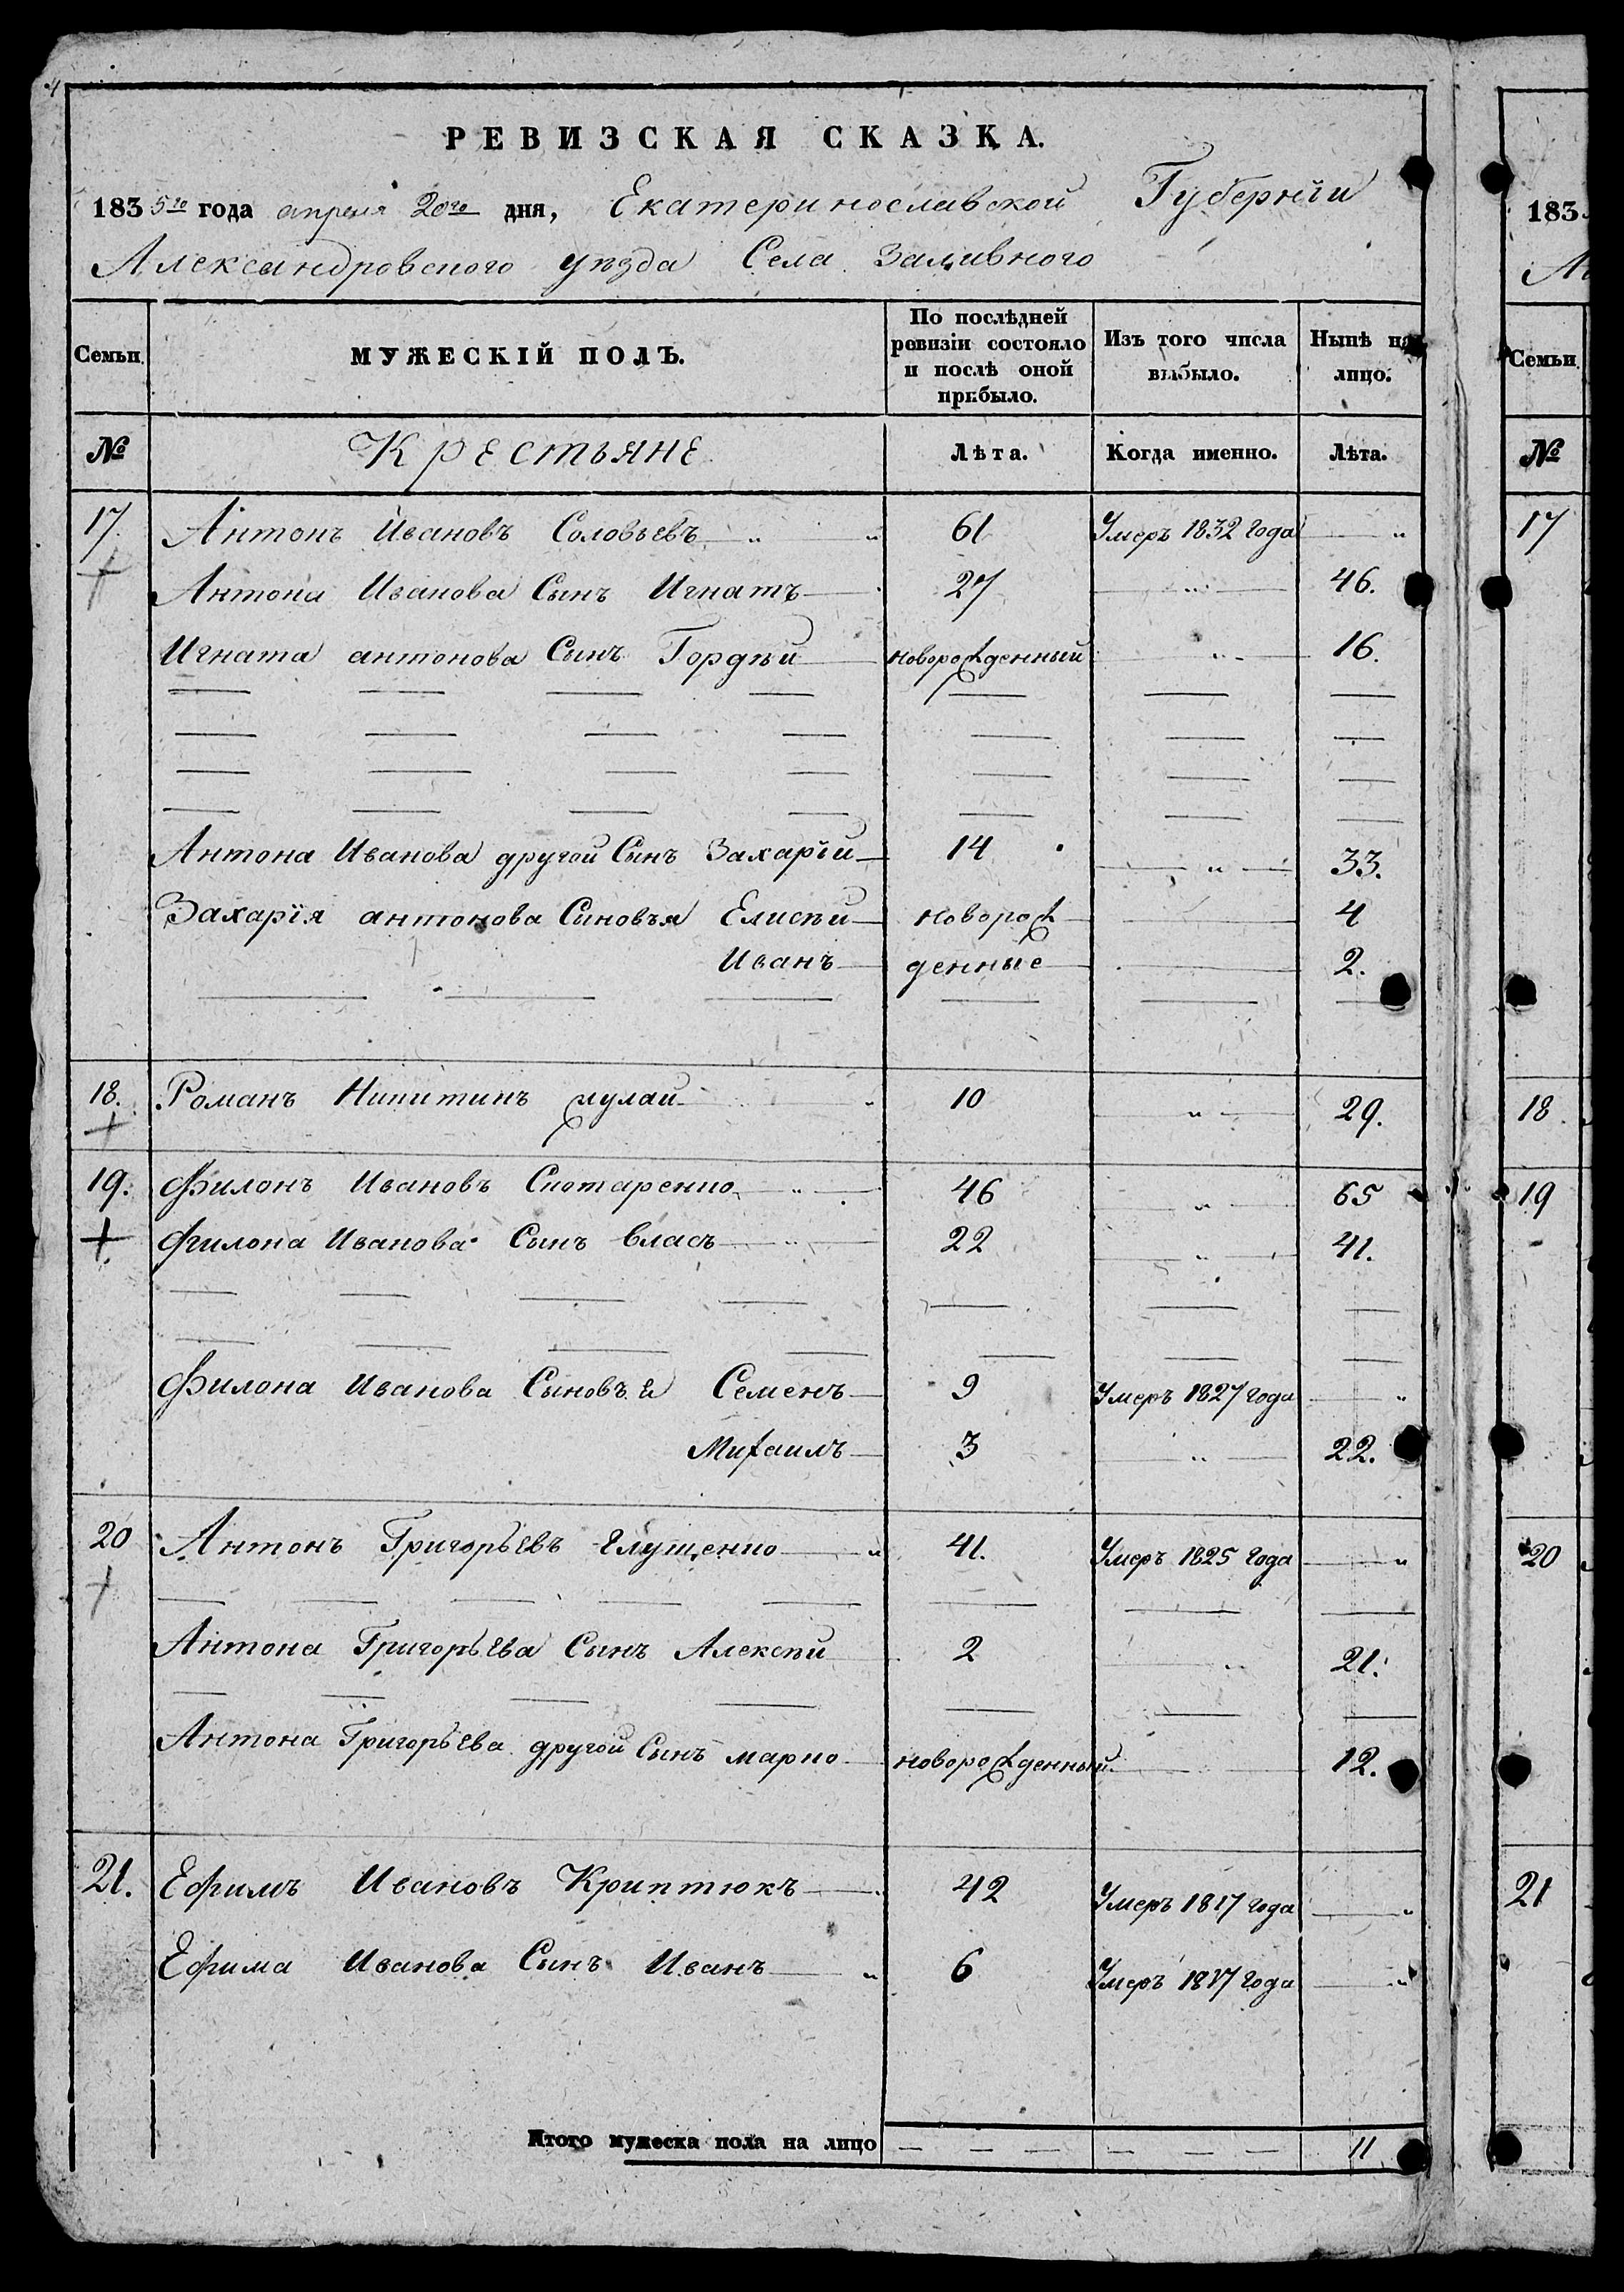 4
РЕВИЗСКАЯ СКАЗКА.
1835го года апреля 20го дня, Екатеринославской Губернiи
Александровского уѣзда Села Заливного
Семьи. МУЖЕСКІЙ ПОЛЪ. По послѣдней ревизіи состояло и послѣ оной прибыло. Изъ того числа выбыло. Нынѣ на лицо.
№ Крестьяне Лѣта. Когда именно. Лѣта.
17. Антонъ Ивановъ Соловьевъ 61 Умеръ 1832 года
Антона Иванова Сынъ Игнатъ 27 46.
Игната антонова Сынъ Гордѣй новорожденный 16.
Антона Иванова другой Сынъ Захарій 14 33.
Захарія антонова Сыновья Елисѣй новорож 4
Иванъ денные 2.
18. Романъ Никитинъ 10 29.
19. Филонъ Ивановъ Скотаренко 46 65
Филона Иванова Сынъ власъ 22 41.
Филона Иванова Сыновья Семенъ 9 Умеръ 1827 года
Михаилъ 3 22.
20 Антонъ Григорьевъ Глущенко 41. Умеръ 1825 года
Антона Григорьева Сынъ Алексѣй 2 21.
Антона Григорьева другой Сынъ марко новорожденный 12.
21. Ефимъ Ивановъ Криптюкъ 42 Умеръ 1817 года
Ефима Иванова Сынъ Иванъ 6 Умеръ 1817 года
Итого мужеска пола на лицо 11
183
Семьи.
№
17
18
19
20
21